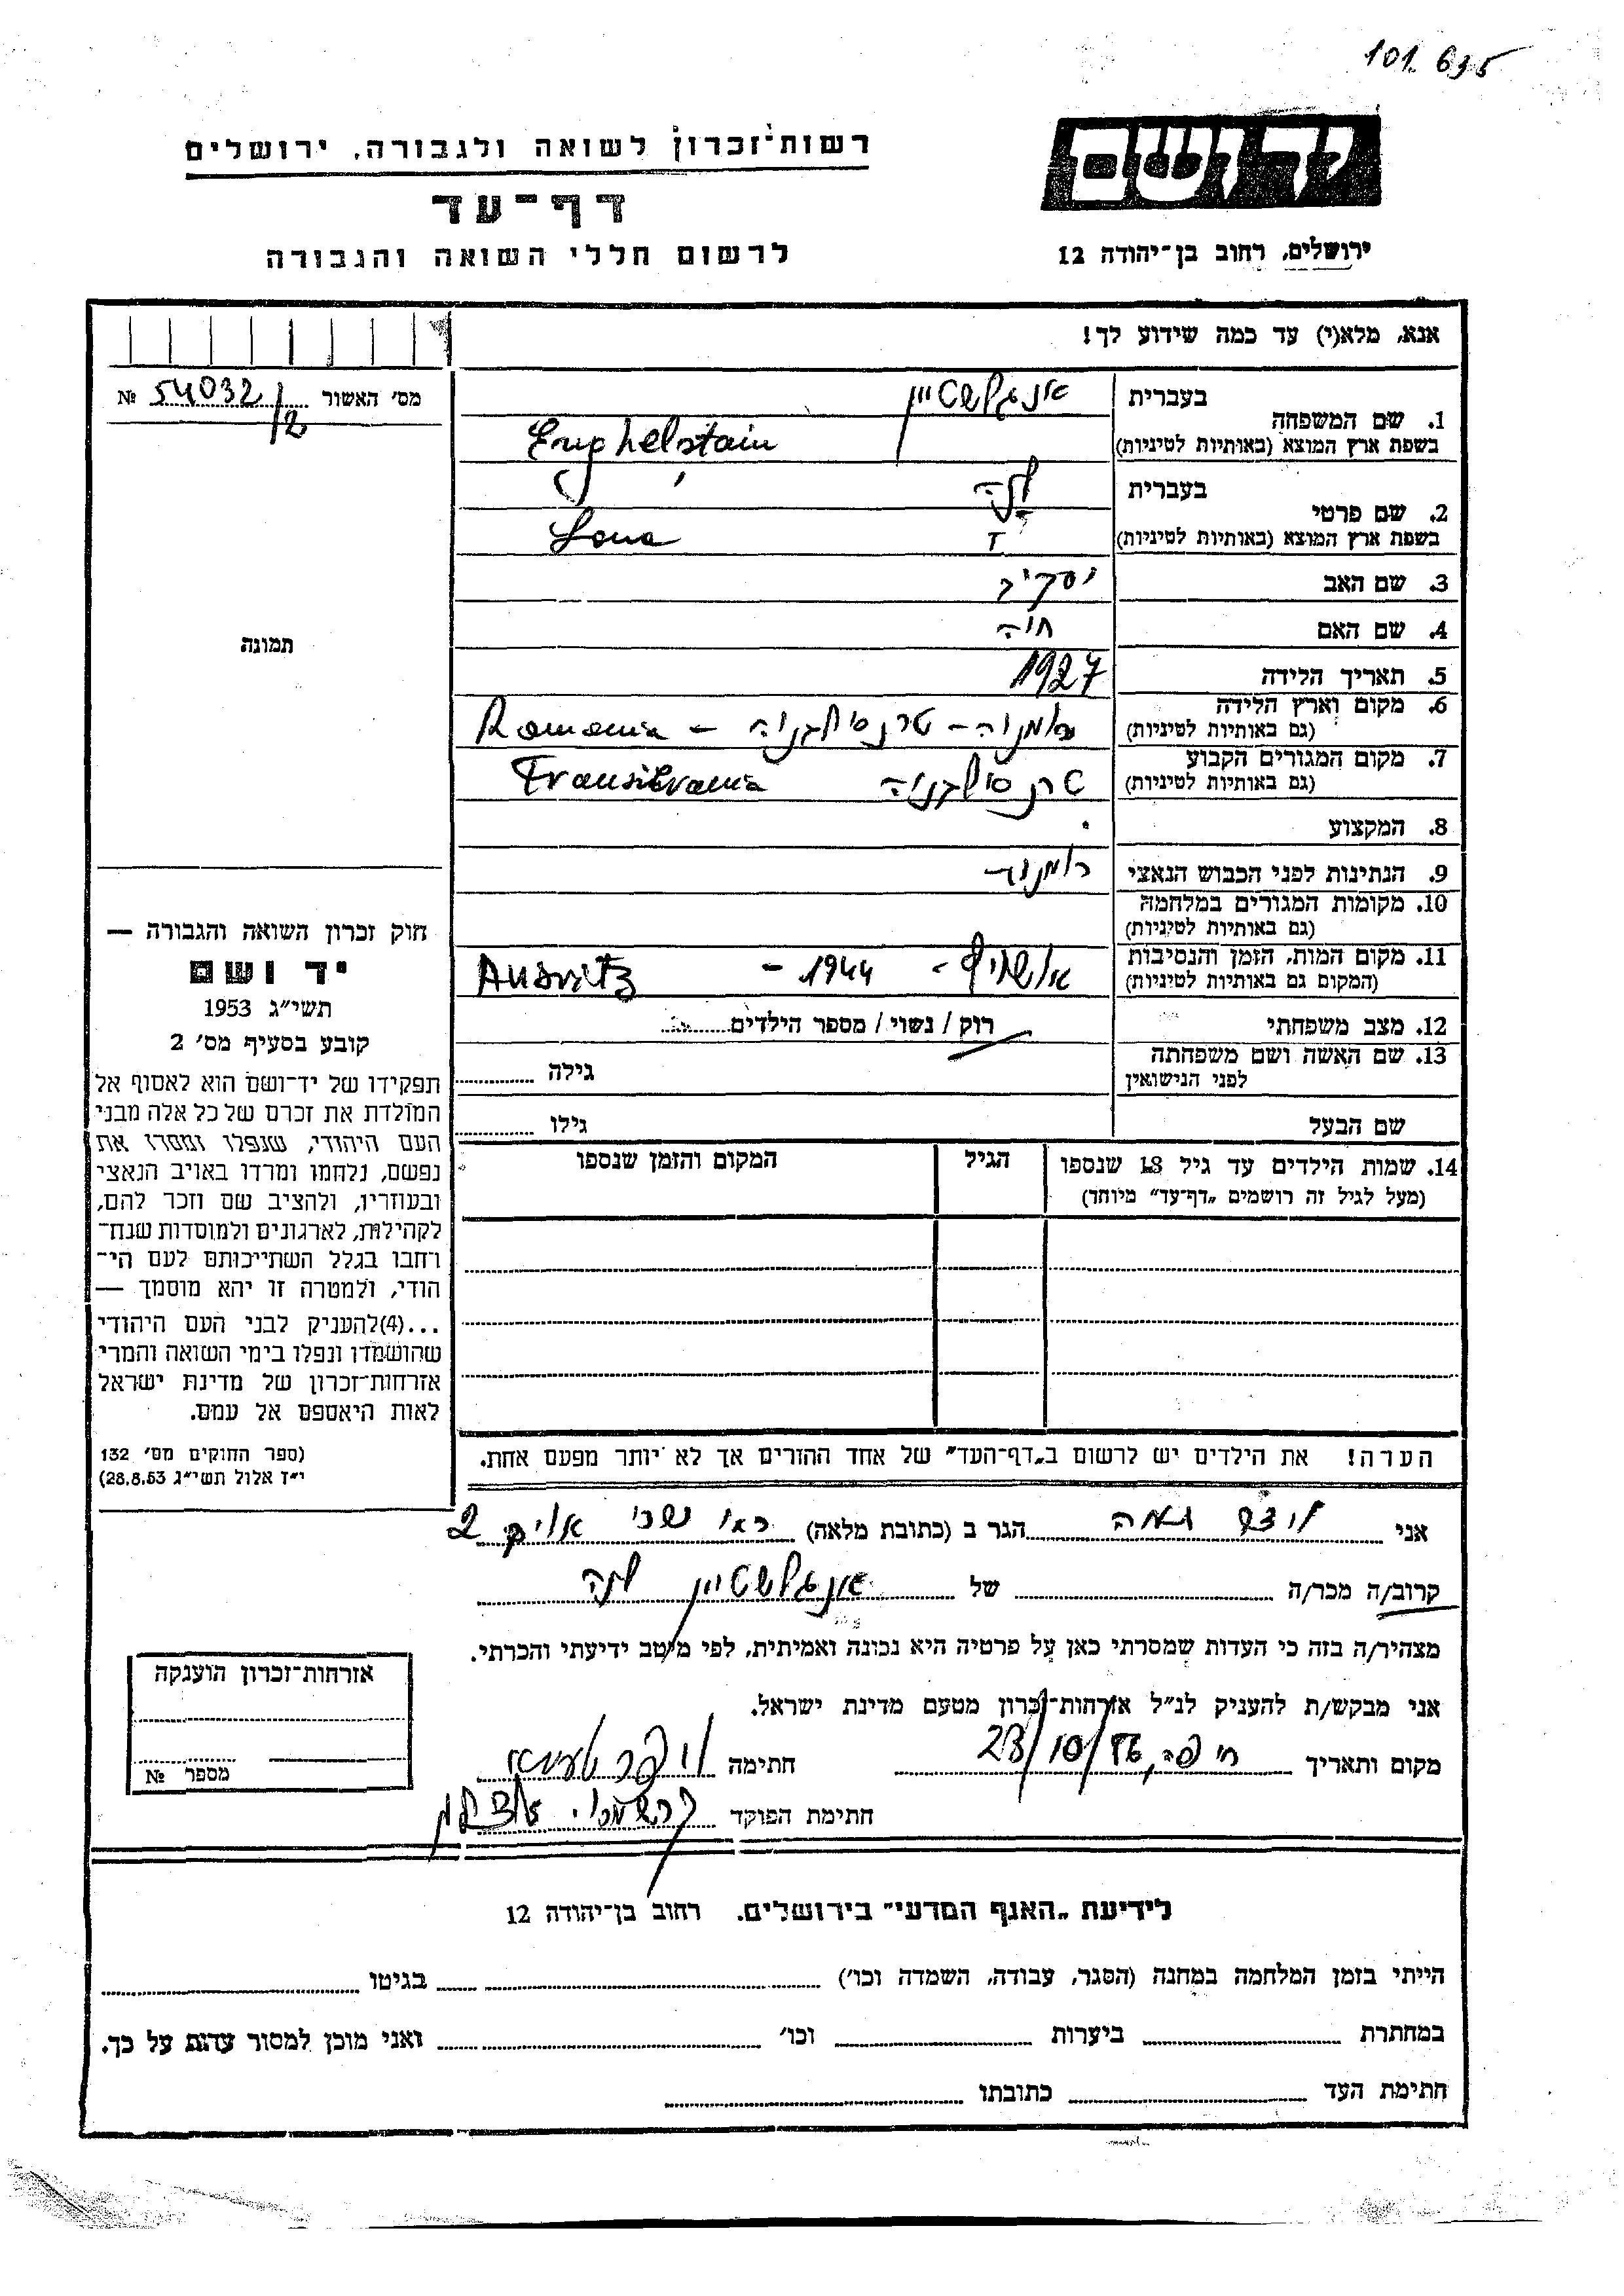 101. 635
יד ושם
ירושלים, רחוב בן־יהודה 12
רשות־זכרון לשואה ולגבורה, ירושלים
דף־עד
לרשום חללי השואה והגבורה
אנא, מלא(י) עד כמה שידוע לך!
מס׳ האשור 54032/2 №
תמונה
חוק זכרון השואה והגבורה —
יד ושם
תשי״ג 1953
קובע בסעיף מס׳ 2
תפקידו של יד־ושם הוא לאסוף אל
המולדת את זכרם של כל אלה מבני
העם היהודי, שנפלו ומסרו את
נפשם, נלחמו ומרדו באויב הנאצי
ובעוזריו, ולהציב שם וזכר להם,
לקהילות, לארגונים ולמוסדות שנח־
רחבו בגלל השתייכותם לעם הי־
הודי, ולמטרה זו יהא מוסמך —
...(4) להעניק לבני העם היהודי
שהושמדו ונפלו בימי השואה והמרי
אזרחות־זכרון של מדינת ישראל
לאות היאספם אל עמם.
(ספר החוקים מס׳ 132
י״ז אלול תשי״ג 28.8.53)
1. שם המשפחה בעברית אנגלשטיין
בשפת ארץ המוצא (באותיות לטיניות) Enghelstain
2. שם פרטי בעברית לנה
בשפת ארץ המוצא (באותיות לטיניות) Lena
3. שם האב יעקב
4. שם האם חוה
5. תאריך הלידה 1927
6. מקום וארץ הלידה (גם באותיות לטיניות) רומניה - טרנסילבניה - Romania
7. מקום המגורים הקבוע (גם באותיות לטיניות) טרנסילבניה Transilvania
8. המקצוע
9. הנתינות לפני הכבוש הנאצי רומניה
10. מקומות המגורים במלחמה (גם באותיות לטיניות)
11. מקום המות, הזמן והנסיבות (המקום גם באותיות לטיניות) אושויץ - 1944 - Ausvitz
12. מצב משפחתי רוק / נשוי / מספר הילדים
13. שם האשה ושם משפחתה לפני הנישואין גילה
שם הבעל גילו
14. שמות הילדים עד גיל 18 שנספו (מעל לגיל זה רושמים „דף־עד״ מיוחד) הגיל המקום והזמן שנספו
הערה! את הילדים יש לרשום ב„דף־העד״ של אחד ההורים אך לא יותר מפעם אחת.
אני הגר ב (כתובת מלאה) 2
קרוב/ה מכר/ה של אנגלשטיין לנה
מצהיר/ה בזה כי העדות שמסרתי כאן על פרטיה היא נכונה ואמיתית, לפי מיטב ידיעתי והכרתי.
אני מבקש/ת להעניק לנ״ל אזרחות־זכרון מטעם מדינת ישראל.
מקום ותאריך חיפה, 23/10/86 חתימה
חתימת הפוקד
אזרחות־זכרון הוענקה
מספר №
לידיעת „האגף המדעי״ בירושלים. רחוב בן־יהודה 12
הייתי בזמן המלחמה במחנה (הסגר, עבודה, השמדה וכו׳) בגיטו
במחתרת ביערות וכו׳ ואני מוכן למסור עדות על כך.
חתימת העד כתובתו